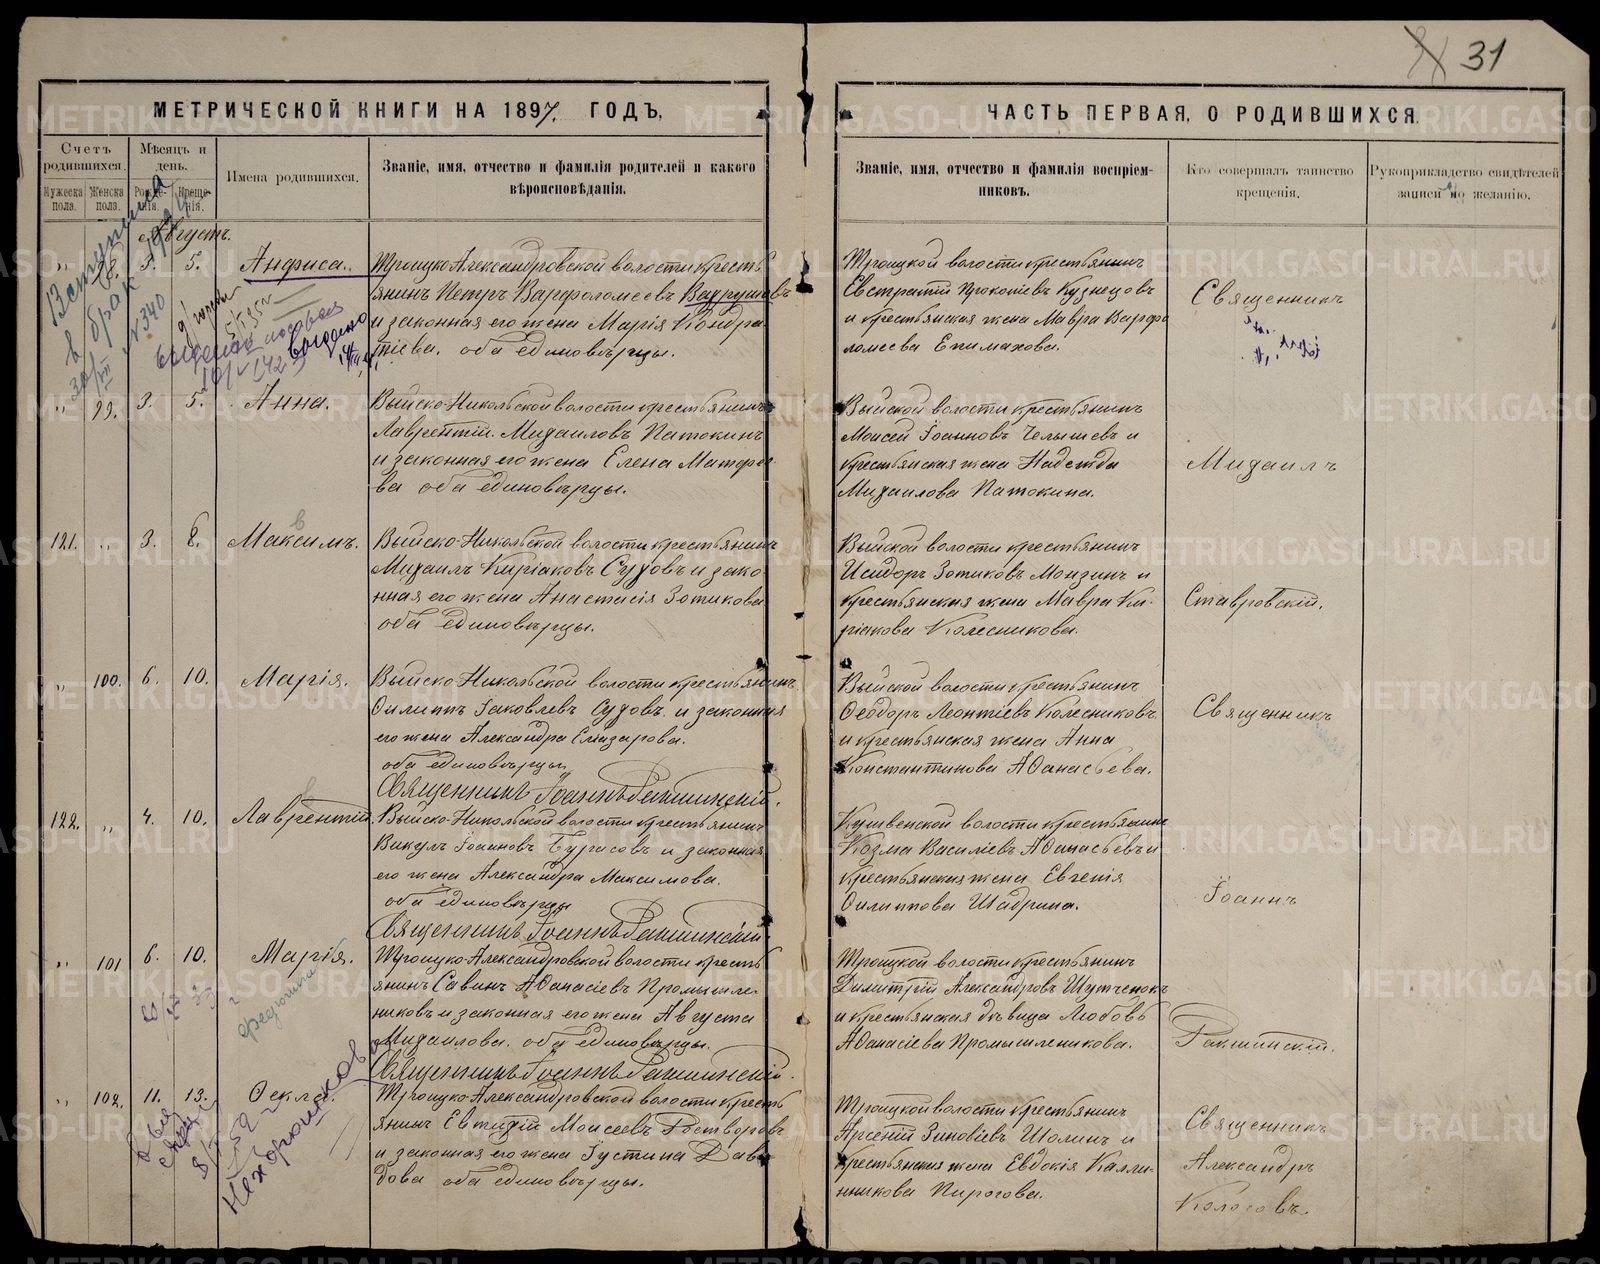 31
МЕТРИЧЕСКОЙ КНИГИ НА 1897. ГОДЪ,
ЧАСТЬ ПЕРВАЯ, О РОДИВШИХСЯ.
Счетъ родившихся.
Мужеска полa.
Женска полa.
Мѣсяцъ и день.
Рожденія.
Крещенія.
Имена родившихся.
Званіе, имя, отчество и фамилія родителей и какого
вѣроисповѣданія.
Званіе, имя, отчество и фамилія воспріем-
никовъ.
Кто совершалъ таинство
крещенія.
Рукоприкладство свидѣтелей
записи по желанію.
Августъ.
„ 98. 3. 5. Анфиса.
Троицко-Александровской волости кресть
янинъ Петръ Варѳоломеевъ Вахрушевъ
и законная его жена Марія Кондра-
тіева. оба единовѣрцы.
Троицкой волости крестьянинъ
Евстратій Прокопіевъ Кузнецовъ
и крестьянская жена Мавра Варѳо
ломеева Епимахова.
Священникъ
Вступила
в брак
№340
„ 99. 3. 5. Анна.
Выйско-Никольской волости крестьянинъ
Лаврентій Михаиловъ Патокинъ
и законная его жена Елена Матѳее-
ва оба единовѣрцы.
Выйской волости крестьянинъ
Моисей Іоанновъ Челышевъ и
крестьянская жена Надежда
Михаилова Патокина.
Михаилъ
121. „ 3. 8. Максимъ.
Выйско-Никольской волости крестьянинъ
Михаилъ Киріаковъ Судовъ и зако-
нная его жена Анастасія Зотикова
оба единовѣрцы.
Выйской волости крестьянинъ
Исидоръ Зотиковъ Мокзинъ и
крестьянская жена Мавра Ки-
ріакова Колесникова.
Ставровскій.
„ 100. 6. 10. Марія.
Выйско-Никольской волости крестьянинъ
Филиппъ Іаковлевъ Судовъ и законная
его жена Александра Елиазарова.
оба единовѣрцы
Священникъ Іоаннъ Ракшинскій.
Выйской волости крестьянинъ
Ѳеодоръ Леонтіевъ Колесниковъ
и крестьянская жена Анна
Константинова Аѳанасьева.
Священникъ
122. „ 4. 10. Лаврентій.
Выйско-Никольской волости крестьянинъ
Викулъ Іоанновъ Бурасовъ и законная
его жена Александра Максимова.
оба единовѣрцы
Священникъ Іоаннъ Ракшинскій
Кушвенской волости крестьянинъ
Козма Василіевъ Аѳанасьевъ и
крестьянская жена Евгенія
Филиппова Шабрина.
Іоаннъ
„ 101 6. 10. Марія.
Троицко-Александровской волости кресть
янинъ Савинъ Аѳанасіевъ Промышле-
никовъ и законная его жена Августа
Михаилова. оба единовѣрцы.
Священникъ Іоаннъ Ракшинскій.
Троицкой волости крестьянинъ
Димитрій Александровъ Шутченокъ
и крестьянская дѣвица Любовь
Аѳанасіева Промышленикова.
Ракшинскій.
„ 102. 11. 13. Ѳекла.
Троицко-Александровской волости кресть
янинъ Евтихій Моисеевъ Растворовъ
и законная его жена Іустина Дави
дова оба единовѣрцы.
Троицкой волости крестьянинъ
Арсеній Зиновіевъ Шолинъ и
крестьянская жена Евдокія Калли-
никова Пирогова.
Священникъ
Александръ
Колосовъ
Нехорошкова
METRIKI.GASO-URAL.RU